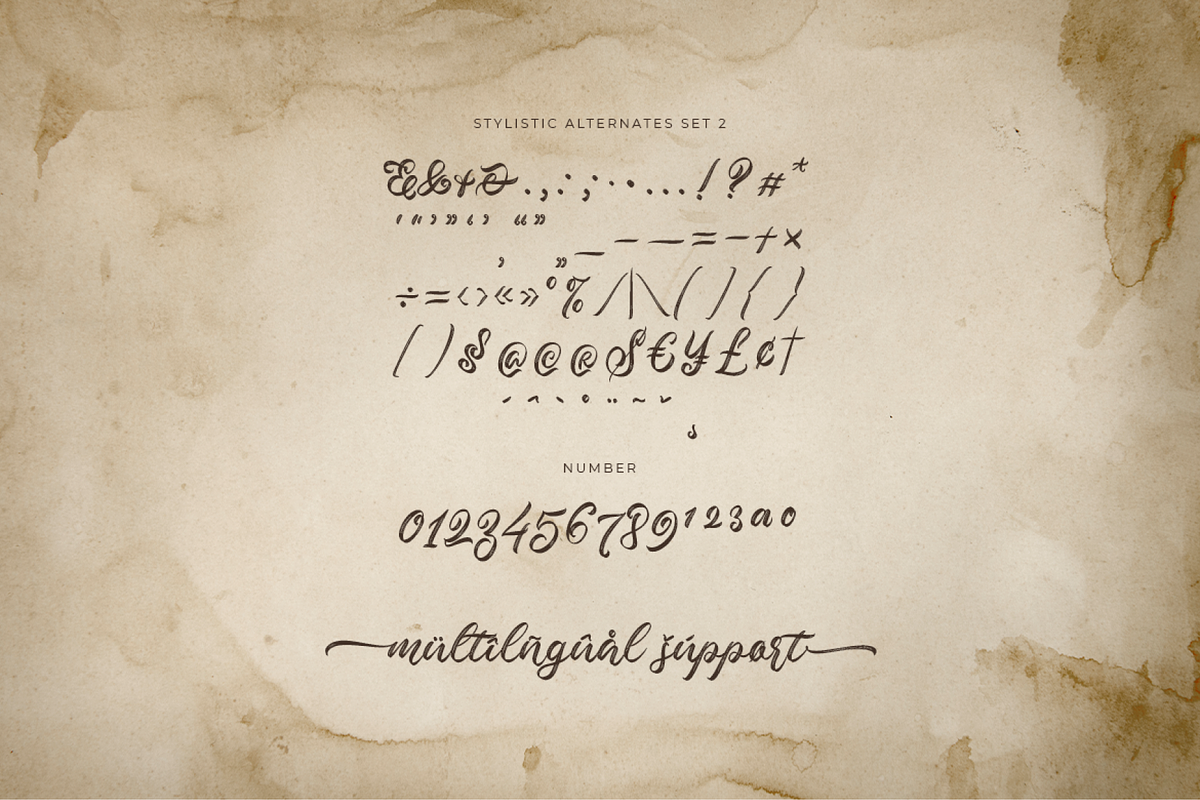 STYLISTIC ALTERNATES SET 2
.,:;·•...!?#*
‘“’”‘’ “”
‚ „_–—=−+×
÷=‹›«»°%/|\(){}
()§@©®$€¥£¢†
´ˆ`˚¨˜ˇ
¸
NUMBER
0123456789¹²³ªº
mültîlñgûål šúppørt